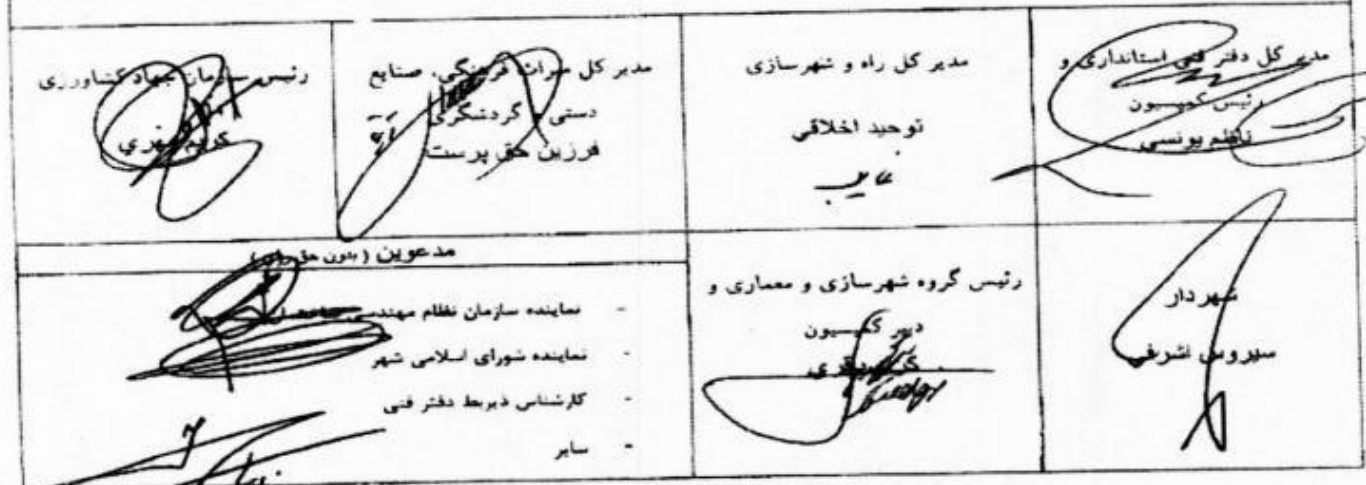 مدیر کل دفتر فنی استانداری و
رئیس کمیسیون
ناظم یونسی
مدیر کل راه و شهرسازی
توحید اخلاقی
غایب
مدیر کل میراث فرهنگی، صنایع
دستی و گردشگری
فرزین حق پرست
رئیس سازمان جهاد کشاورزی
کریم
شهردار
سیروس اشرفی
رئیس گروه شهرسازی و معماری و
دبیر کمیسیون
مدعوین ( بدون حق رای )
- نماینده سازمان نظام مهندسی
- نماینده شورای اسلامی شهر
- کارشناس ذیربط دفتر فنی
- سایر